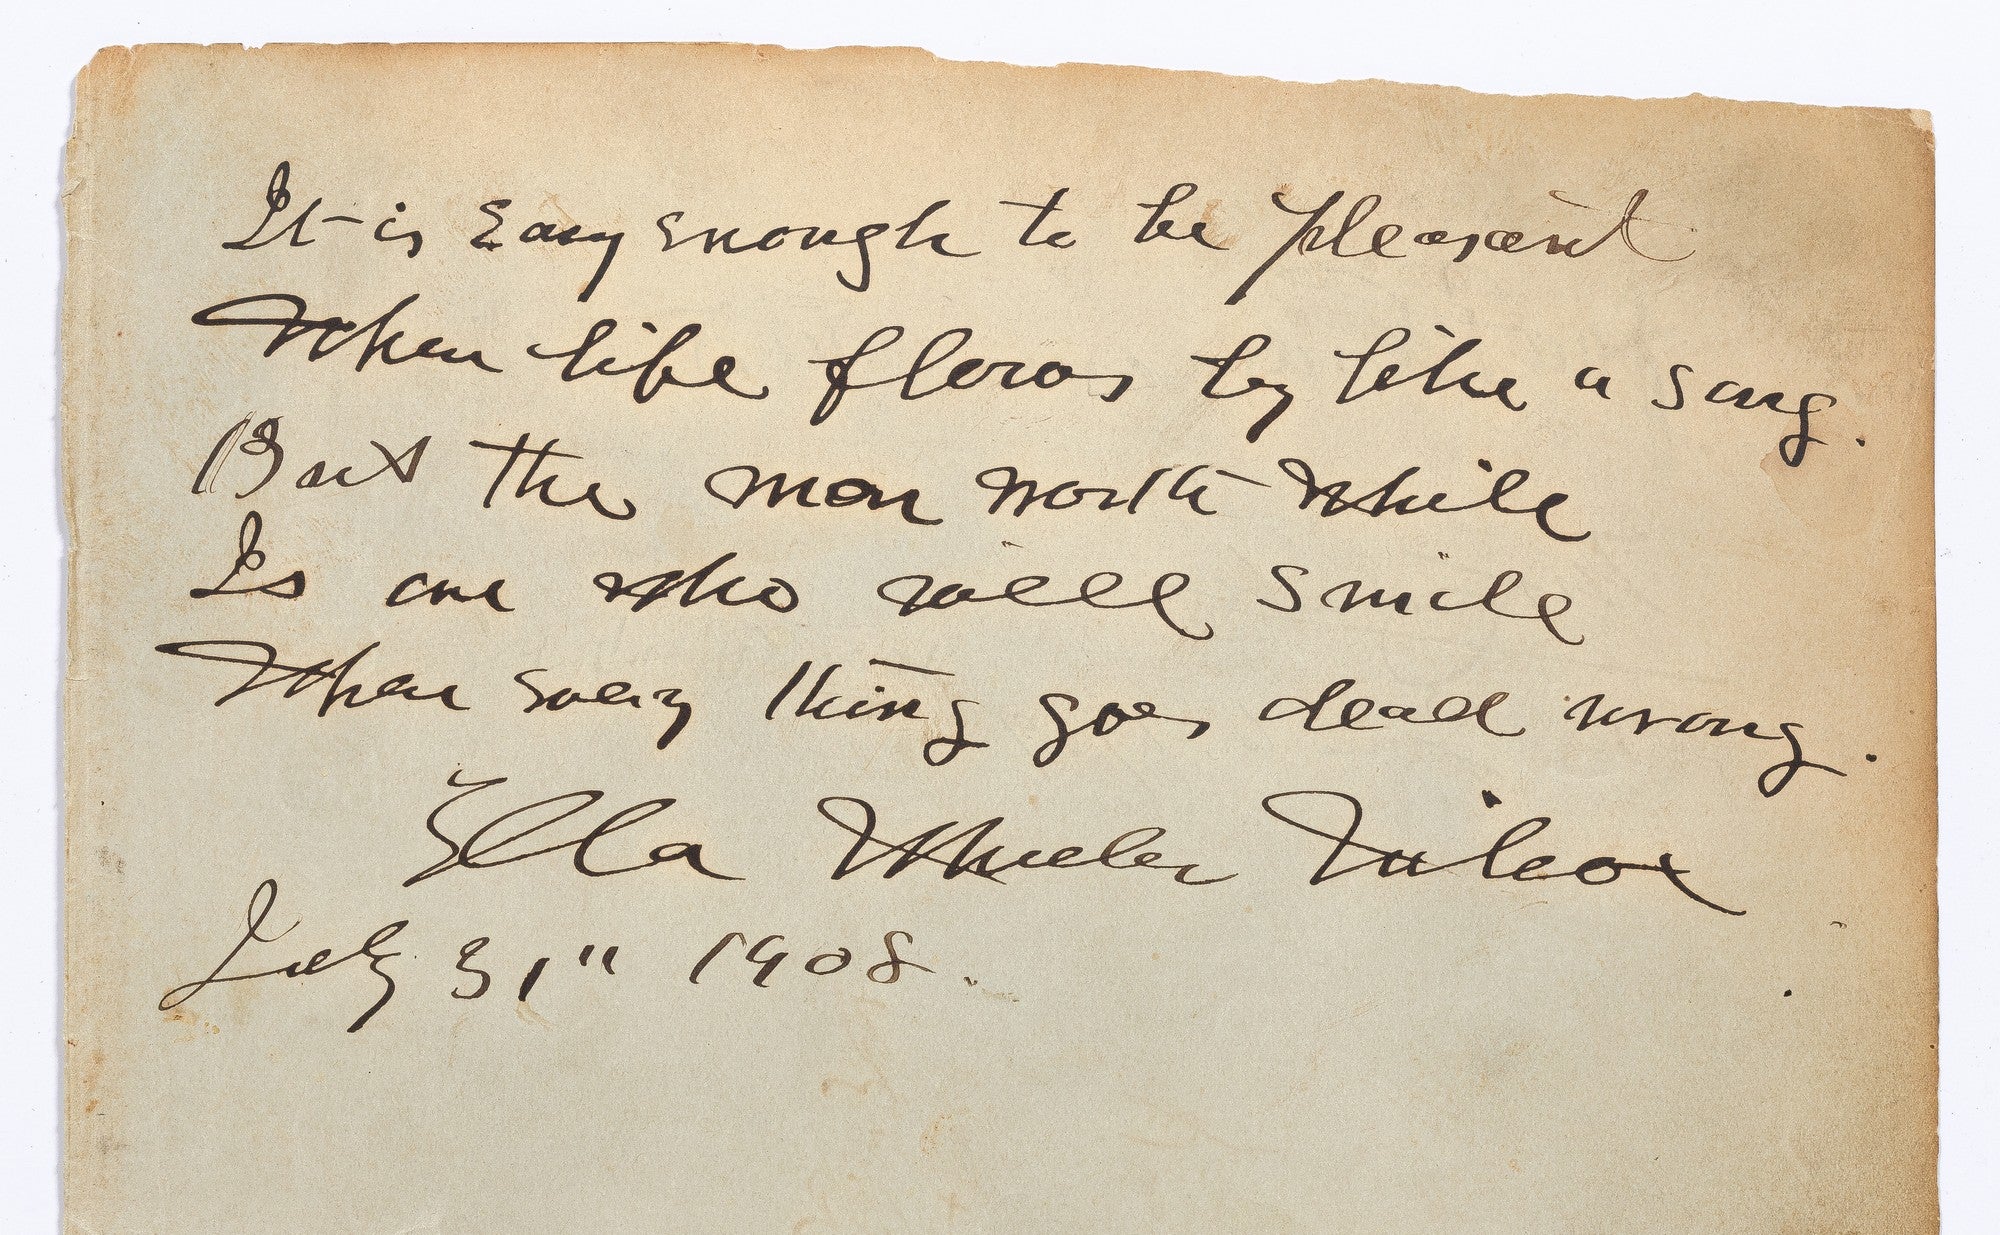 It is Easy enough to be pleasant
When life flows by like a song.
But the man worth while
Is one who will smile
When every thing goes dead wrong.
Ella Wheeler Wilcox
July 31" 1908.